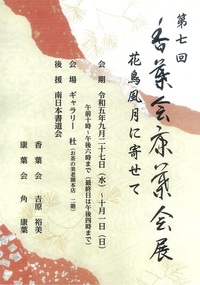 第七回
香葉会康葉会展
花鳥風月に寄せて
会期 令和五年九月二十七日(水)~十月一日(日)
午前十時~午後六時まで(最終日は午後四時まで)
会場 ギャラリー杜(お茶の美老園本店 二階)
後援 南日本書道会
香葉会 吉原 裕美
康葉会 角 康葉